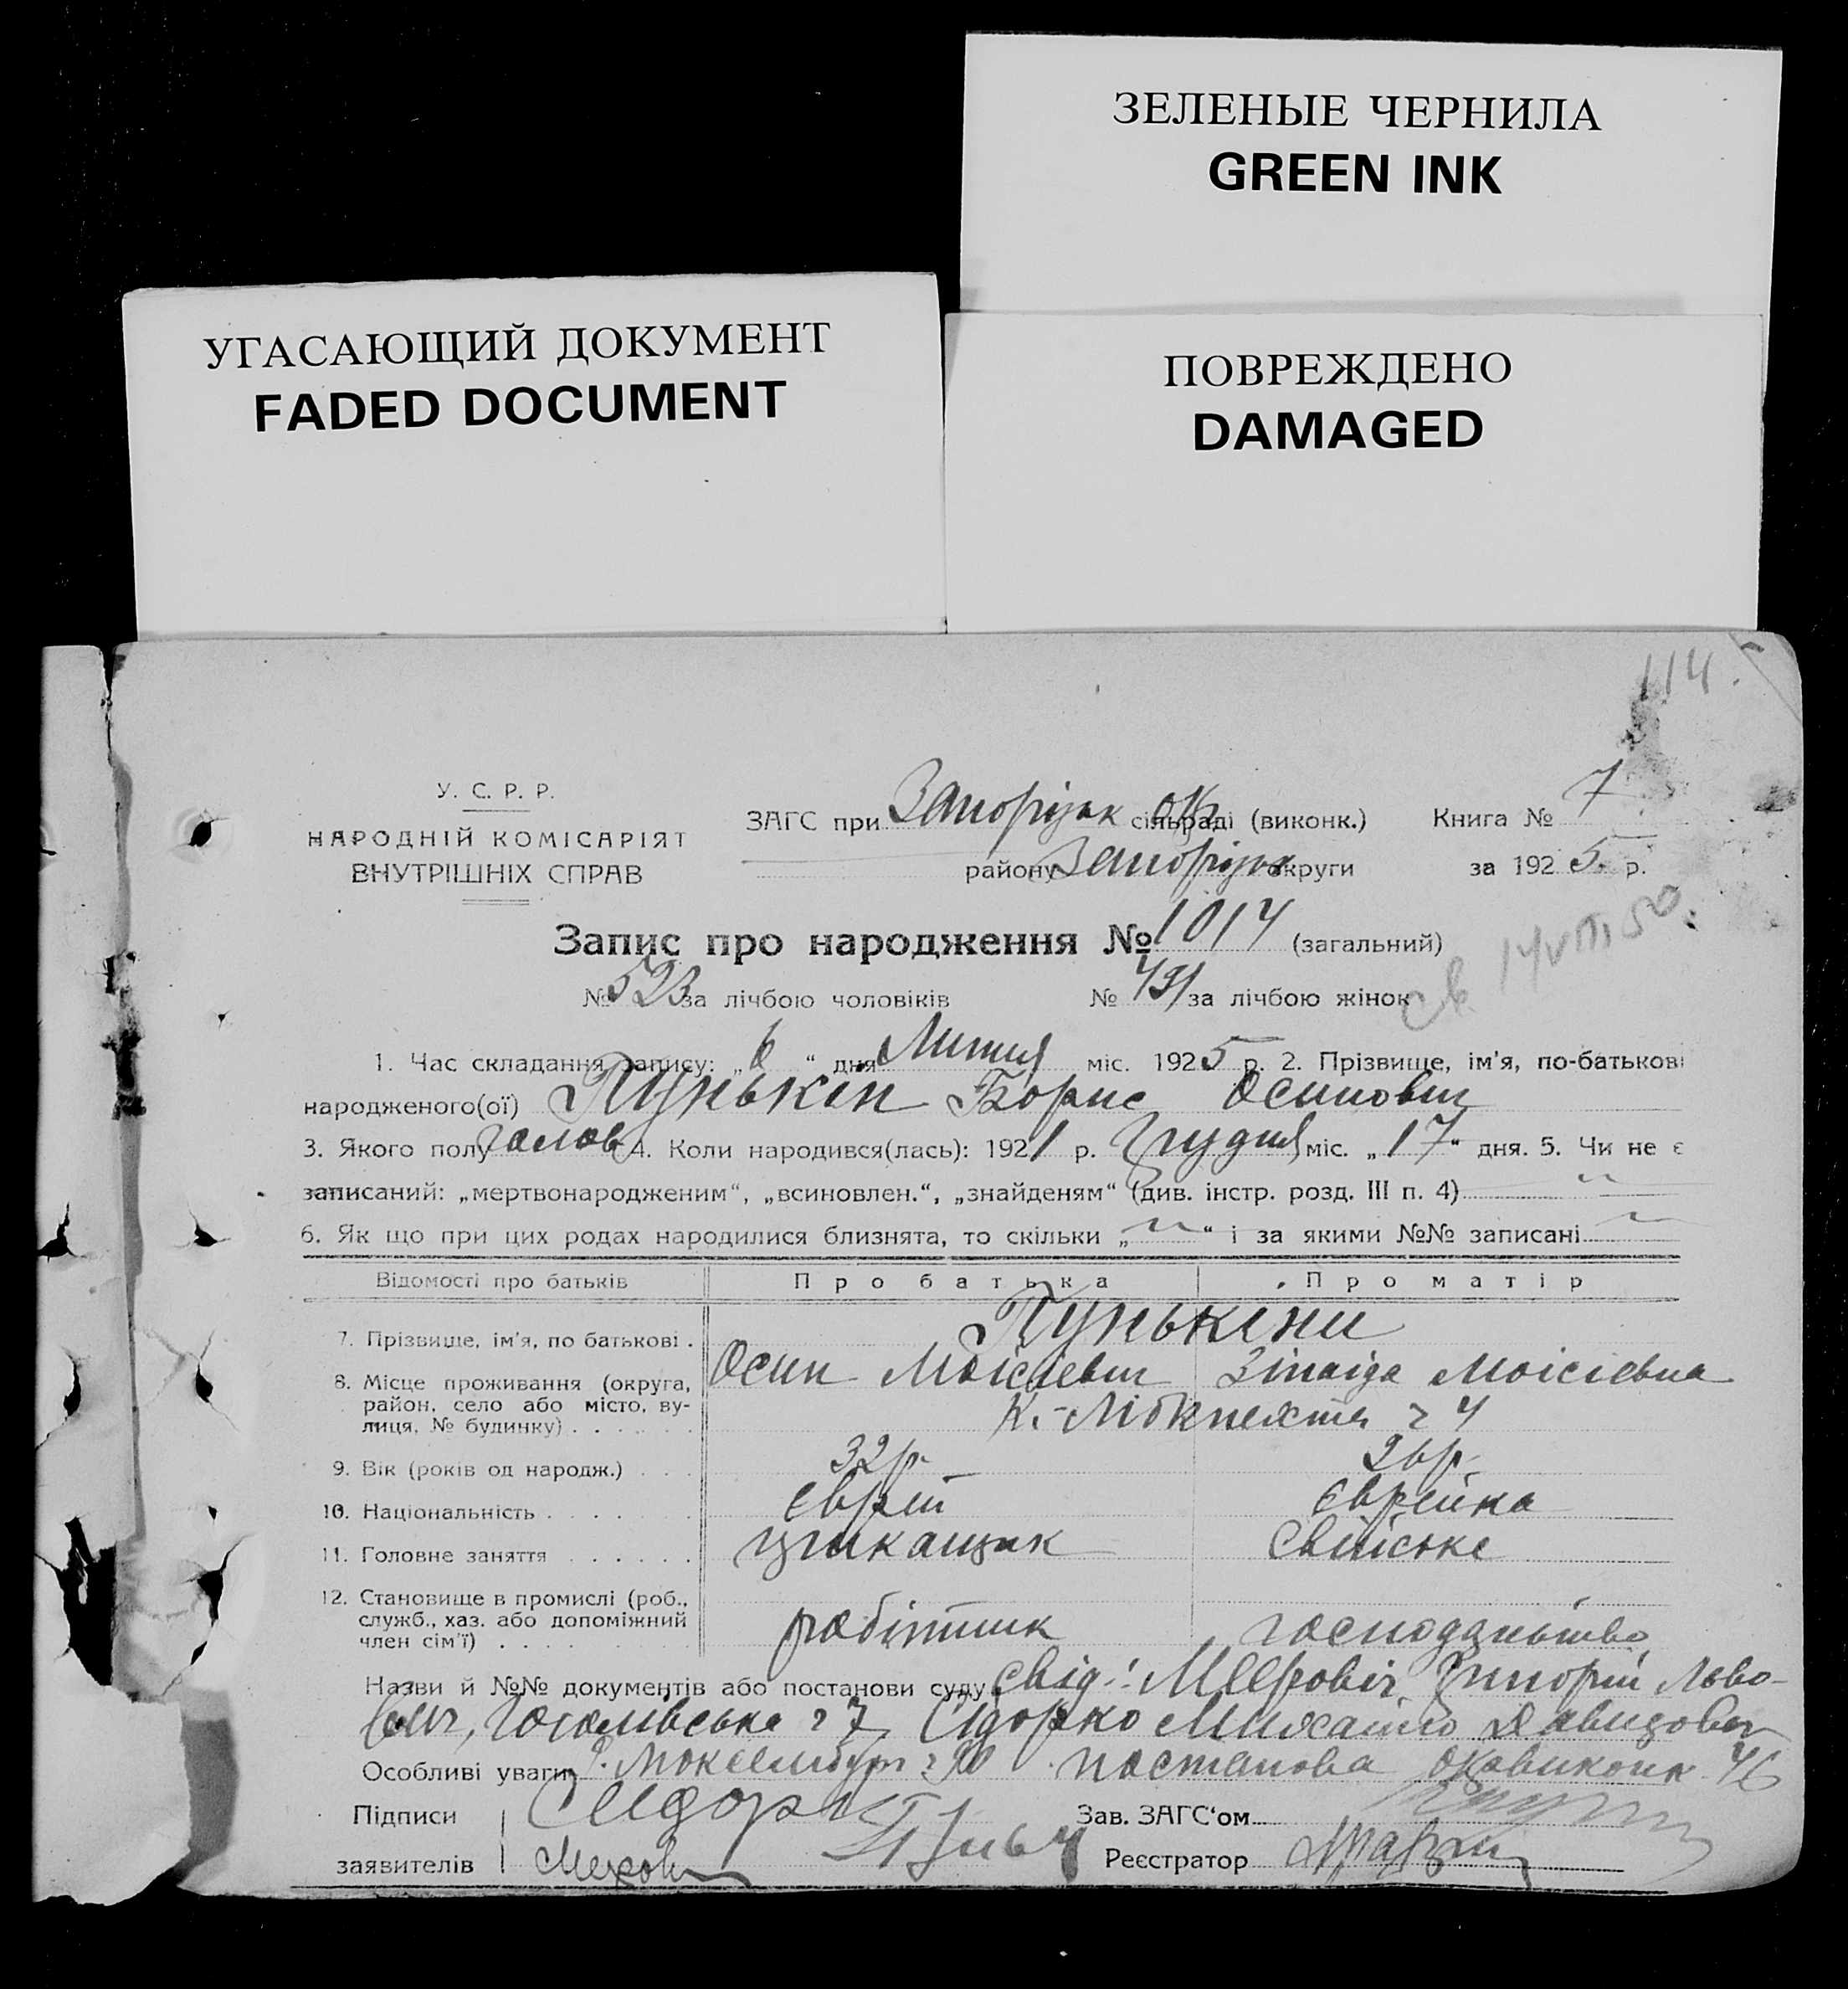 ЗЕЛЕНЫЕ ЧЕРНИЛА
GREEN INK
УГАСАЮЩИЙ ДОКУМЕНТ
FADED DOCUMENT
ПОВРЕЖДЕНО
DAMAGED
114.
У. С. Р. Р.
НАРОДНІЙ КОМІСАРІЯТ
ВНУТРІШНІХ СПРАВ
ЗАГС при Запорізьк сільраді (виконк.) Книга № 7
району Запорізьк округи за 1925 р.
Запис про народження № 1014 (загальний)
№ 523 за лічбою чоловіків № 491 за лічбою жінок
1. Час складання запису: „6“ дня Липня міс. 1925 р. 2. Прізвище, ім'я, по-батькові
народженого(ої) Пунькін Борис Осипович
3. Якого полу чолов 4. Коли народився(лась): 1921 р. Грудня міс. „17“ дня. 5. Чи не є
записаний: „мертвонародженим“, „всиновлен.“, „знайденям“ (див. інстр. розд. III п. 4)
6. Як що при цих родах народилися близнята, то скільки „ “ і за якими №№ записані
Відомості про батьків Про батька Про матір
7. Прізвище, ім'я, по батькові . Пунькіни
Осип Мойсієвич Зінаіда Моісіевна
8. Місце проживання (округа, район, село або місто, вулиця, № будинку) К.-Лібкнехта ч 4
9. Вік (років од народж.) 32 р. 26 р.
10. Національність Єврей Єврейка
11. Головне заняття Свійське
12. Становище в промислі (роб., служб., хаз. або допоміжний член сім'ї) робітник господарьство
Назви й №№ документів або постанови суду свід.: Меєровіч Григорій Льво-
вич, Гоголівська ч 7, Сідорко Михайло Давидович
Особливі уваги Р. Люксембург ч 20 постанова Окрвиконк
Підписи Сидорко Зав. ЗАГС'ом
заявителів Реєстратор